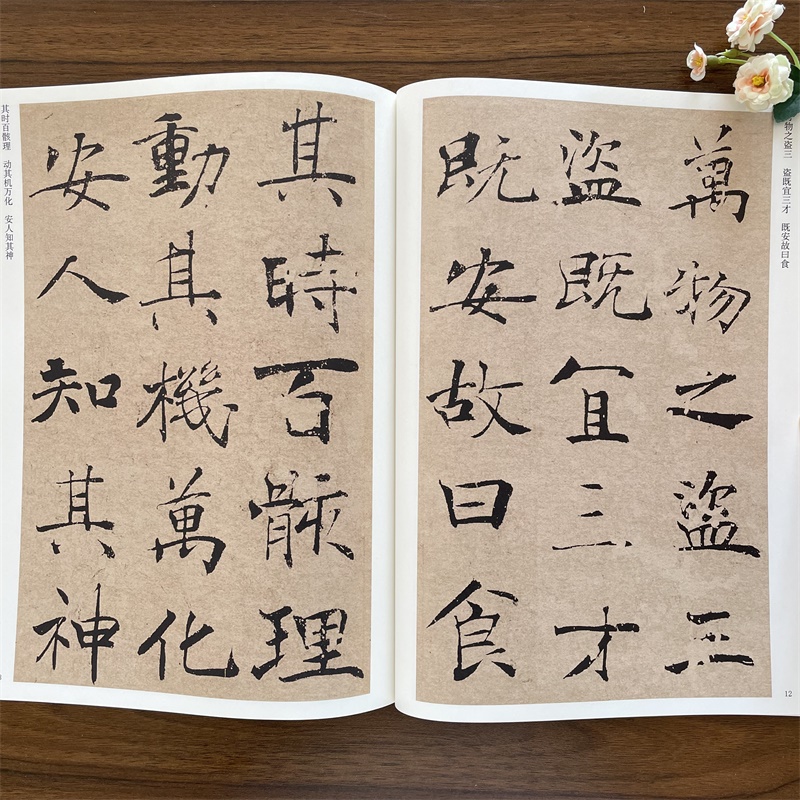 萬物之盜三
盜既宜三才
既安故曰食
其時百骸理
動其機萬化
安人知其神
物之盗三 盗既宜三才 既安故曰食
其时百骸理 动其机万化 安人知其神
12